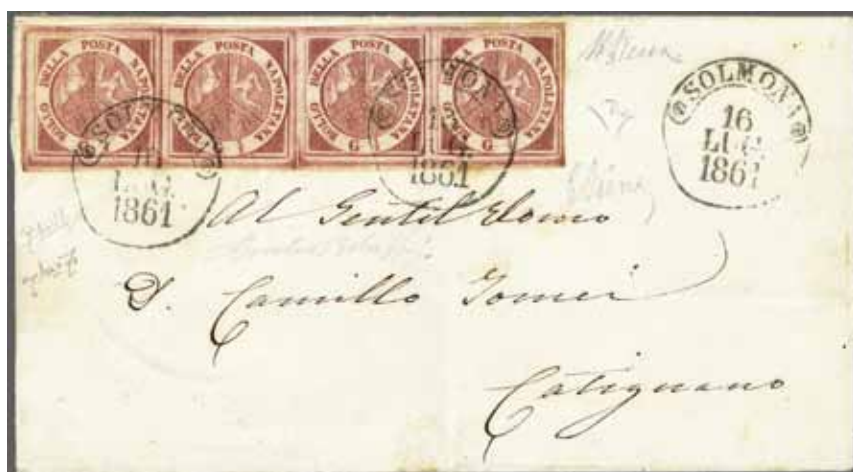 BOLLO DELLA POSTA NAPOLETANA
BOLLO DELLA POSTA NAPOLETANA
BOLLO DELLA POSTA NAPOLETANA
G
BOLLO DELLA POSTA NAPOLETANA
G
SOLMONA
16
LUG.
1861
SOLMONA
16
LUG.
1861
SOLMONA
16
LUG.
1861
Al Gentil Uomo
D. Camillo Tomei
Catignano